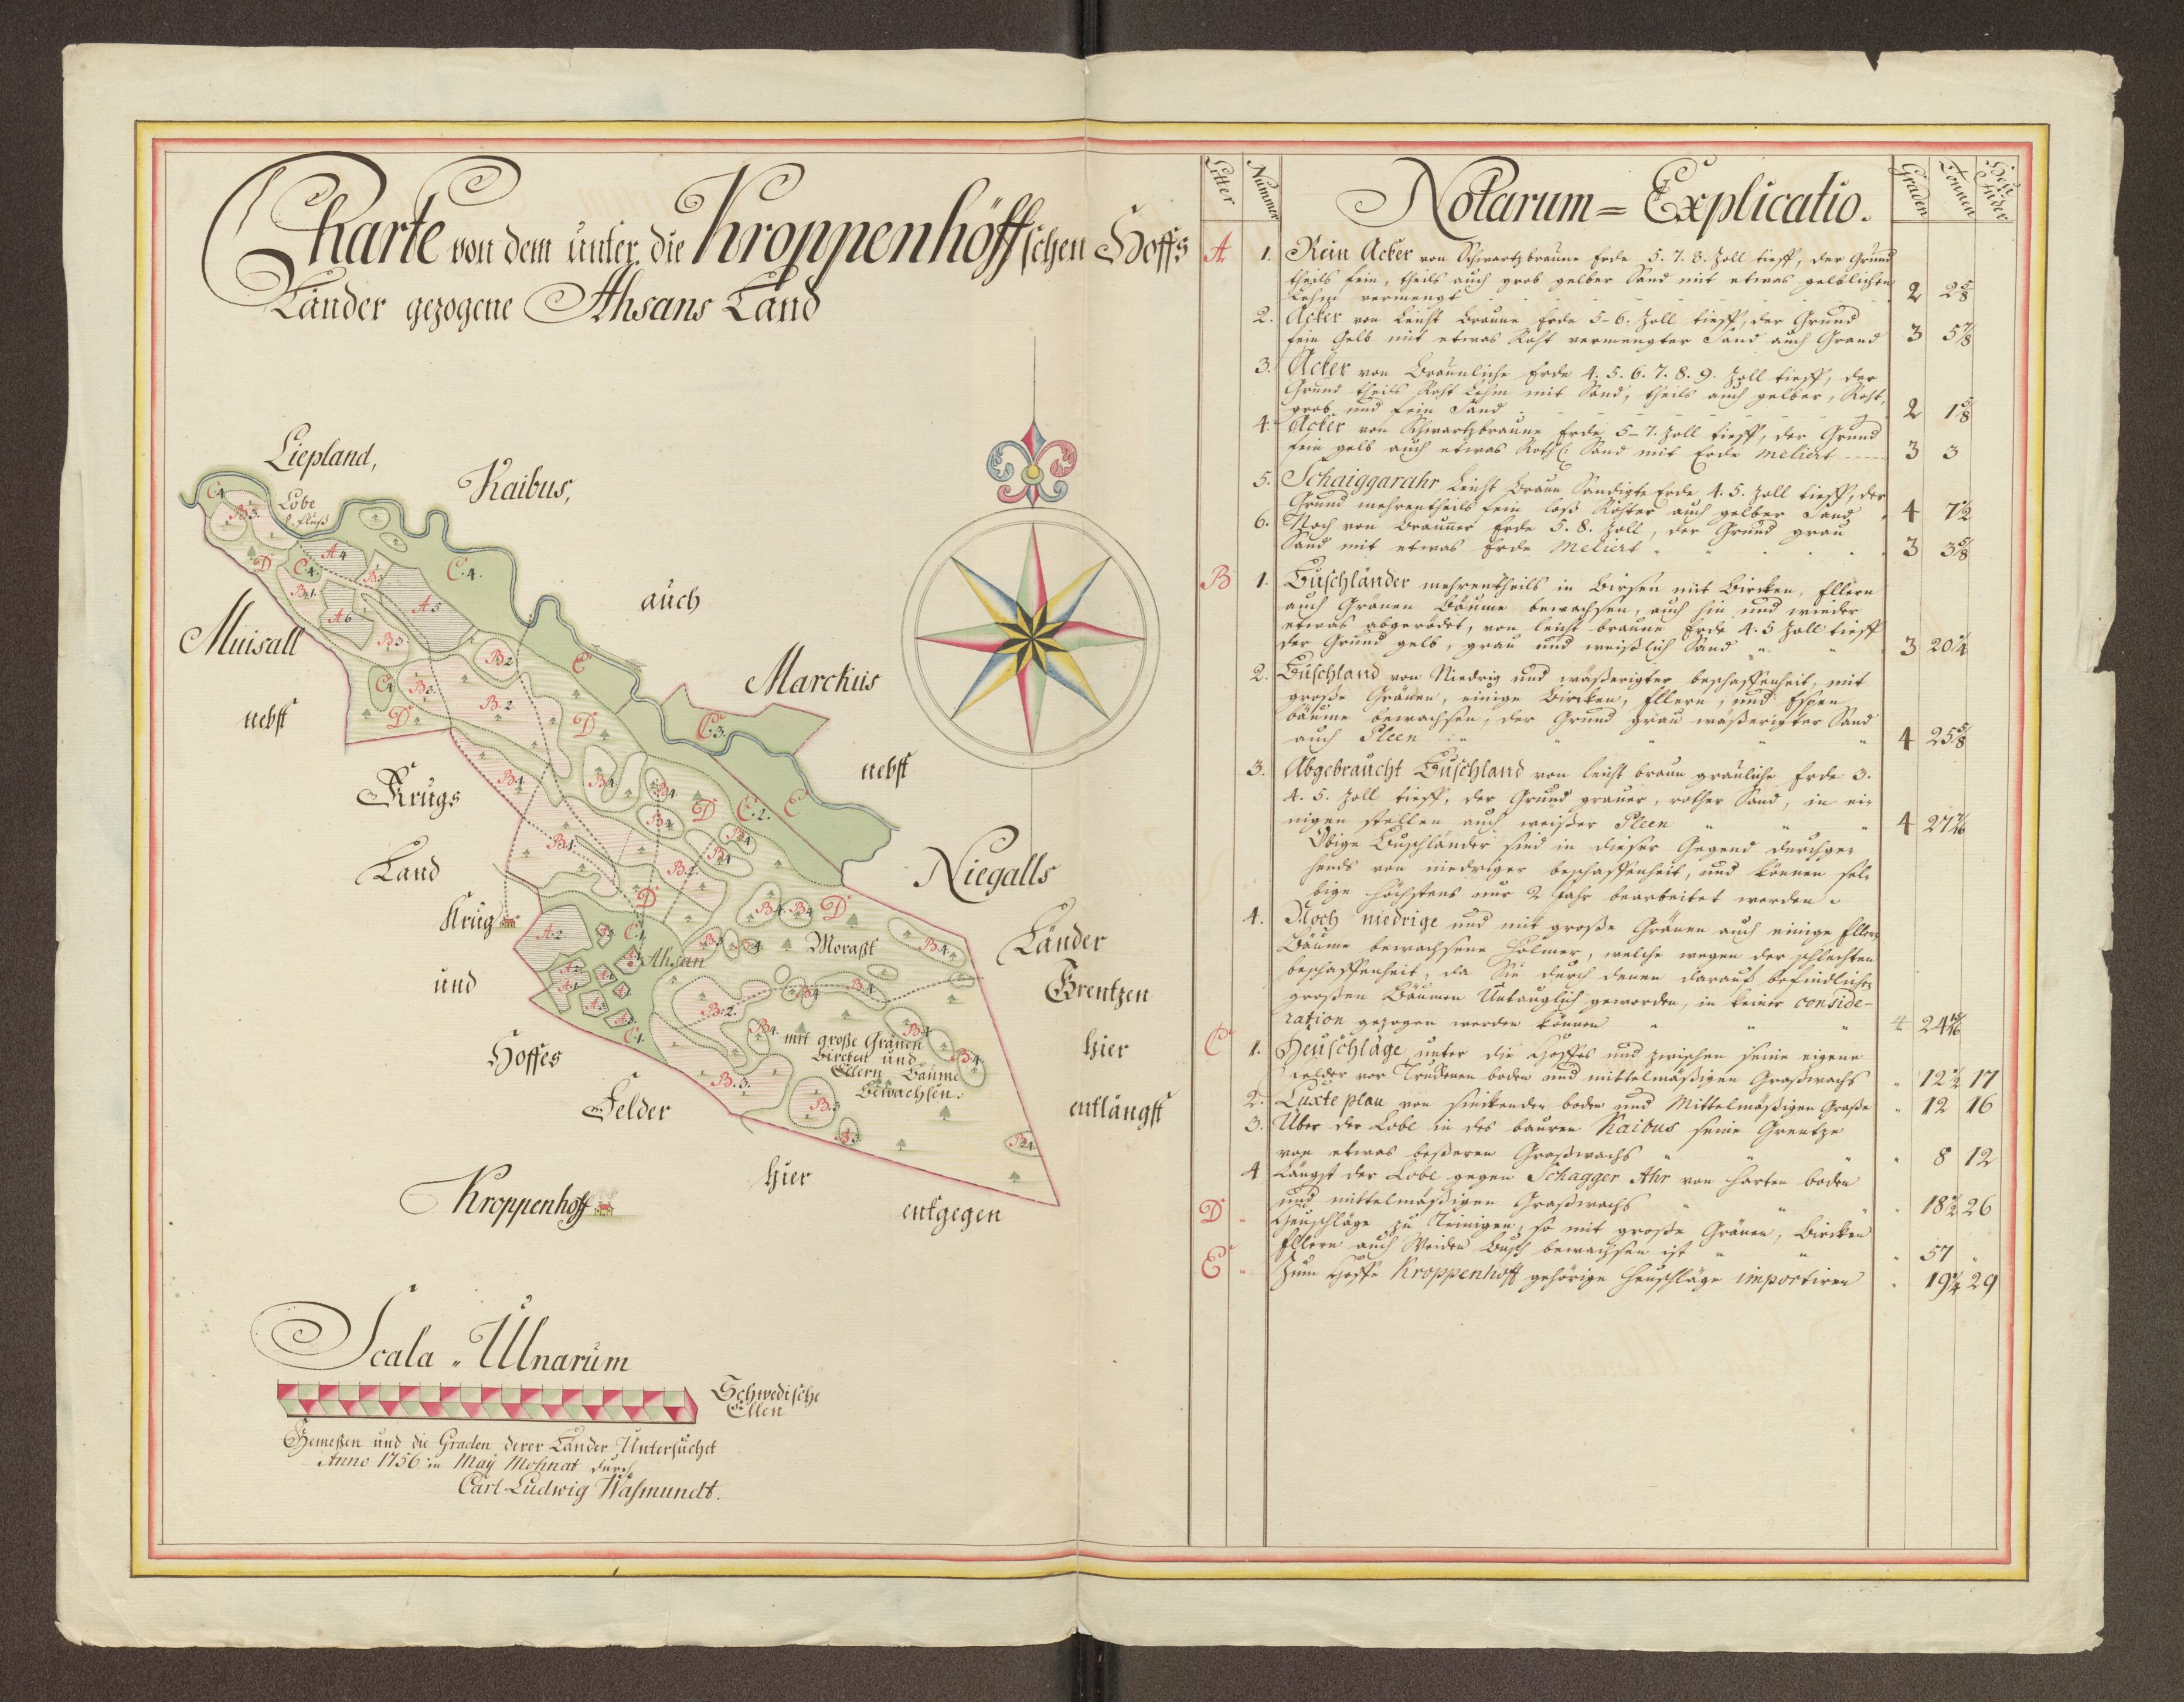 Charte von dem unter die Kroppenhöffschen Hoffs
Länder gezogene Ahsans Land
Liepland,
Kaibus,
Lobe
fluß
auch
Marckus
nebst
Niegalls
Länder
Grentzen
hier
entlängst
Muisall
nebst
Krugs
Land
Krug
und
Hoffes
Felder
Kroppenhoff
hier
entgegen
C4
B3.
A4
D
C4.
B3
C.4.
B.1.
A5
A6
B3
B2
E
C4
B3.
B.2
D
D
C.3.
B.1
B4
B4
D
C.2.
E
B4
B4
B4
B1.
B2.
D
B4
B4
D
A.2
C.1.
B3
B4
Morast
B4.
Ahsan
B4
B.4
B.2.
B4.
B4
mit große Gränen
Bircken und
Ellern Bäume
Bewachsen.
B4.
C1.
B.3.
B.3
B4.
Scala Ulnarum
Schwedische
Ellen
Gemeßen und die Graden derer Länder Untersuchet
Anno 1756 in May Mohnat durch
Carl Ludwig Waßmundt.
Litter
Nummer
Notarum=Explicatio.
Graden
Tonnen
Heu Fuder
A 1. Rein Acker von Schwartzbraune Erde 5. 7. 8. Zoll tieff, der Grund
theils fein, theils auch grob gelber Sand mit etwas gelblichen
Lehm vermengt 2 2 5/8
2. Acker von Leicht Braune Erde 5-6. Zoll tieff, der Grund
fein Gelb mit etwas Roht vermengter Sand auch Grand 3 5 7/8
3. Acker von Bräunliche Erde 4. 5. 6. 7. 8. 9. Zoll tieff, der
Grund theils Roht Lehm mit Sand, theils auch gelber, Roht,
grob und fein Sand 2 1 5/8
4. Acker von Schwartzbraune Erde 5-7. Zoll tieff, der Grund
fein gelb auch etwas Rothl: Sand mit Erde meliert 3 3
5. Schaiggarahr Leicht Braun Sandigte Erde 4. 5. Zoll tieff, der
Grund mehrentheils fein loß Rohter auch gelber Sand 4 7 1/2
6. Noch von Brauner Erde 5. 8. Zoll, der Grund grau
Sand mit etwas Erde Meliert 3 3 5/8
B 1. Buschländer mehrentheils in Birsen mit Bircken, Ellern
auch Gränen Bäume bewachsen, auch hin und wieder
etwas abgerödet, von leicht braune Erde 4. 5 Zoll tieff
der Grund gelb, grau und weißlich Sand 3 20 1/4
2. Buschland von Niedrig und wäßerigter beschaffenheit, mit
große Gränen, einige Bircken, Ellern, und Espen
bäume bewachsen, der Grund grau wäßerigter Sand
auch Pleen 4 25 5/8
3. Abgebraucht Buschland von leicht braun gräuliche Erde 3.
4. 5. Zoll tieff, der Grund grauer, rother Sand, in ei-
nigen stellen auch weißer Pleen 4 27
Obige Buschländer sind in dieser Gegend durchge-
hends von niedriger beschaffenheit, und können sel-
bige höchstens nur 2 Jahr bearbeitet werden
4. Noch niedrige und mit große Gränen auch einige Ellern
Bäume bewachsene Holmer, welche wegen der schlechten
beschaffenheit, da Sie durch denen darauf befindlichen
großen Bäumen Untauglich geworden, in keine conside-
ration gezogen werden können 4 24
C 1. Heuschläge unter die Hoffes und zwischen seine eigene
Felder von Truckenen boden und mittelmäßigen Graßwachs 12 1/2 17
2. Luxte plau von sinckenden boden und Mittelmäßigen Graße 12 16
3. Über der Lobe in des bauren Kaibus seine Grentze
von etwas beßeren Graßwachs 8 12
4 Längst der Lobe gegen Schagger Ahr von harten boden
und mittelmäßigen Graßwachs 18 1/2 26
D Heuschläge zu Reinigen, so mit große Gränen, Bircken
Ellern auch Weiden Busch bewachsen ist 57
E Zum Hoffe Kroppenhoff gehörige Heuschläge importiren 19 1/4 29